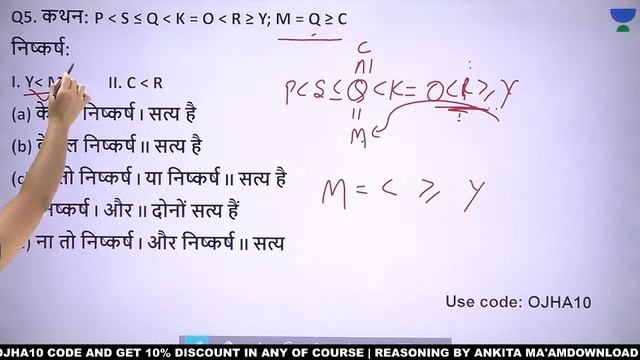 Q5. कथन: P < S ≤ Q < K = O < R ≥ Y; M = Q ≥ C
निष्कर्ष:
I. Y< M II. C < R
(a) निष्कर्ष I सत्य है
(b) निष्कर्ष II सत्य है
निष्कर्ष I या निष्कर्ष II सत्य है
निष्कर्ष I और II दोनों सत्य हैं
ना तो निष्कर्ष I और निष्कर्ष II सत्य
C
P<S≤Q<K= O<R≥Y
=
M
M = C ≥ Y
Use code: OJHA10
OJHA10 CODE AND GET 10% DISCOUNT IN ANY OF COURSE | REASONING BY ANKITA MA'AMDOWNLOAD